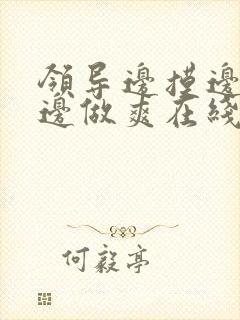 領导邊摸邊
邊做爽在綫
何毅亭